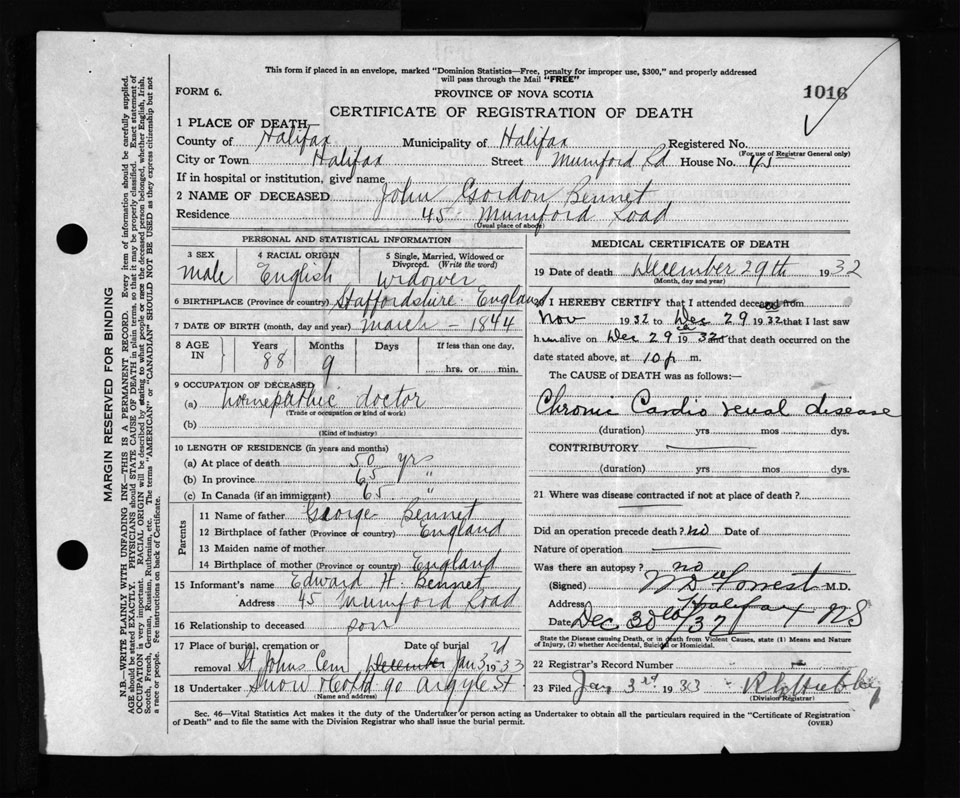 This form if placed in an envelope, marked "Dominion Statistics—Free, penalty for improper use, $300," and properly addressed
will pass through the Mail "FREE"
FORM 6.
PROVINCE OF NOVA SCOTIA
1016
CERTIFICATE OF REGISTRATION OF DEATH
1 PLACE OF DEATH—
County of Halifax Municipality of Halifax Registered No.
(For use of Registrar General only)
City or Town Halifax Street Mumford Rd House No. 45
If in hospital or institution, give name
2 NAME OF DECEASED John Gordon Bennet
Residence 45 Mumford Road
(Usual place of abode)
MARGIN RESERVED FOR BINDING
N.B.—WRITE PLAINLY WITH UNFADING INK—THIS IS A PERMANENT RECORD. Every item of information should be carefully supplied.
AGE should be stated EXACTLY. PHYSICIANS should STATE CAUSE OF DEATH in plain terms, so that it may be properly classified. Exact statement of
OCCUPATION is very important. RACIAL ORIGIN will be described by stating to what people or race the deceased person belonged, whether English, Irish,
Scotch, French, German, Russian, Ruthenian, etc. The terms "AMERICAN" or "CANADIAN" SHOULD NOT BE USED as they express citizenship but not
a race or people. See instructions on back of Certificate.
PERSONAL AND STATISTICAL INFORMATION
3 SEX
male
4 RACIAL ORIGIN
English
5 Single, Married, Widowed or
Divorced. (Write the word)
Widower
6 BIRTHPLACE (Province or country) Staffordshire England
7 DATE OF BIRTH (month, day and year) March — 1844
8 AGE IN
Years Months Days If less than one day,
88 9 hrs. or min.
9 OCCUPATION OF DECEASED
(a) homepathic doctor
(Trade or occupation or kind of work)
(b)
(Kind of industry)
10 LENGTH OF RESIDENCE (in years and months)
(a) At place of death 50 yrs
(b) In province 65 "
(c) In Canada (if an immigrant) 65 "
Parents
11 Name of father George Bennet
12 Birthplace of father (Province or country) England
13 Maiden name of mother
14 Birthplace of mother (Province or country) England
15 Informant's name Edward H. Bennet
Address 45 Mumford Road
16 Relationship to deceased son
17 Place of burial, cremation or Date of burial
removal St Johns Cem December Jan 3rd 1933
18 Undertaker Snow & Co Ltd 90 Argyle St
(Name and address)
MEDICAL CERTIFICATE OF DEATH
19 Date of death December 29th 1932
(Month, day and year)
20 I HEREBY CERTIFY that I attended deceased from
Nov 1932 to Dec 29 1932 that I last saw
him alive on Dec 29 1932 and that death occurred on the
date stated above, at 10 p m.
The CAUSE of DEATH was as follows:—
Chronic Cardio renal disease
(duration) yrs mos dys.
CONTRIBUTORY
(duration) yrs mos dys.
21 Where was disease contracted if not at place of death?
Did an operation precede death? no Date of
Nature of operation
Was there an autopsy? no
(Signed) W D Forrest M.D.
Address Halifax NS
Date Dec 30 /32
State the Disease causing Death, or in death from Violent Causes, state (1) Means and Nature
of Injury, (2) whether Accidental, Suicidal or Homicidal.
22 Registrar's Record Number
23 Filed Jan 3rd 1933
(Division Registrar)
Sec. 46—Vital Statistics Act makes it the duty of the Undertaker or person acting as Undertaker to obtain all the particulars required in the "Certificate of Registration
of Death" and to file the same with the Division Registrar who shall issue the burial permit.
(OVER)